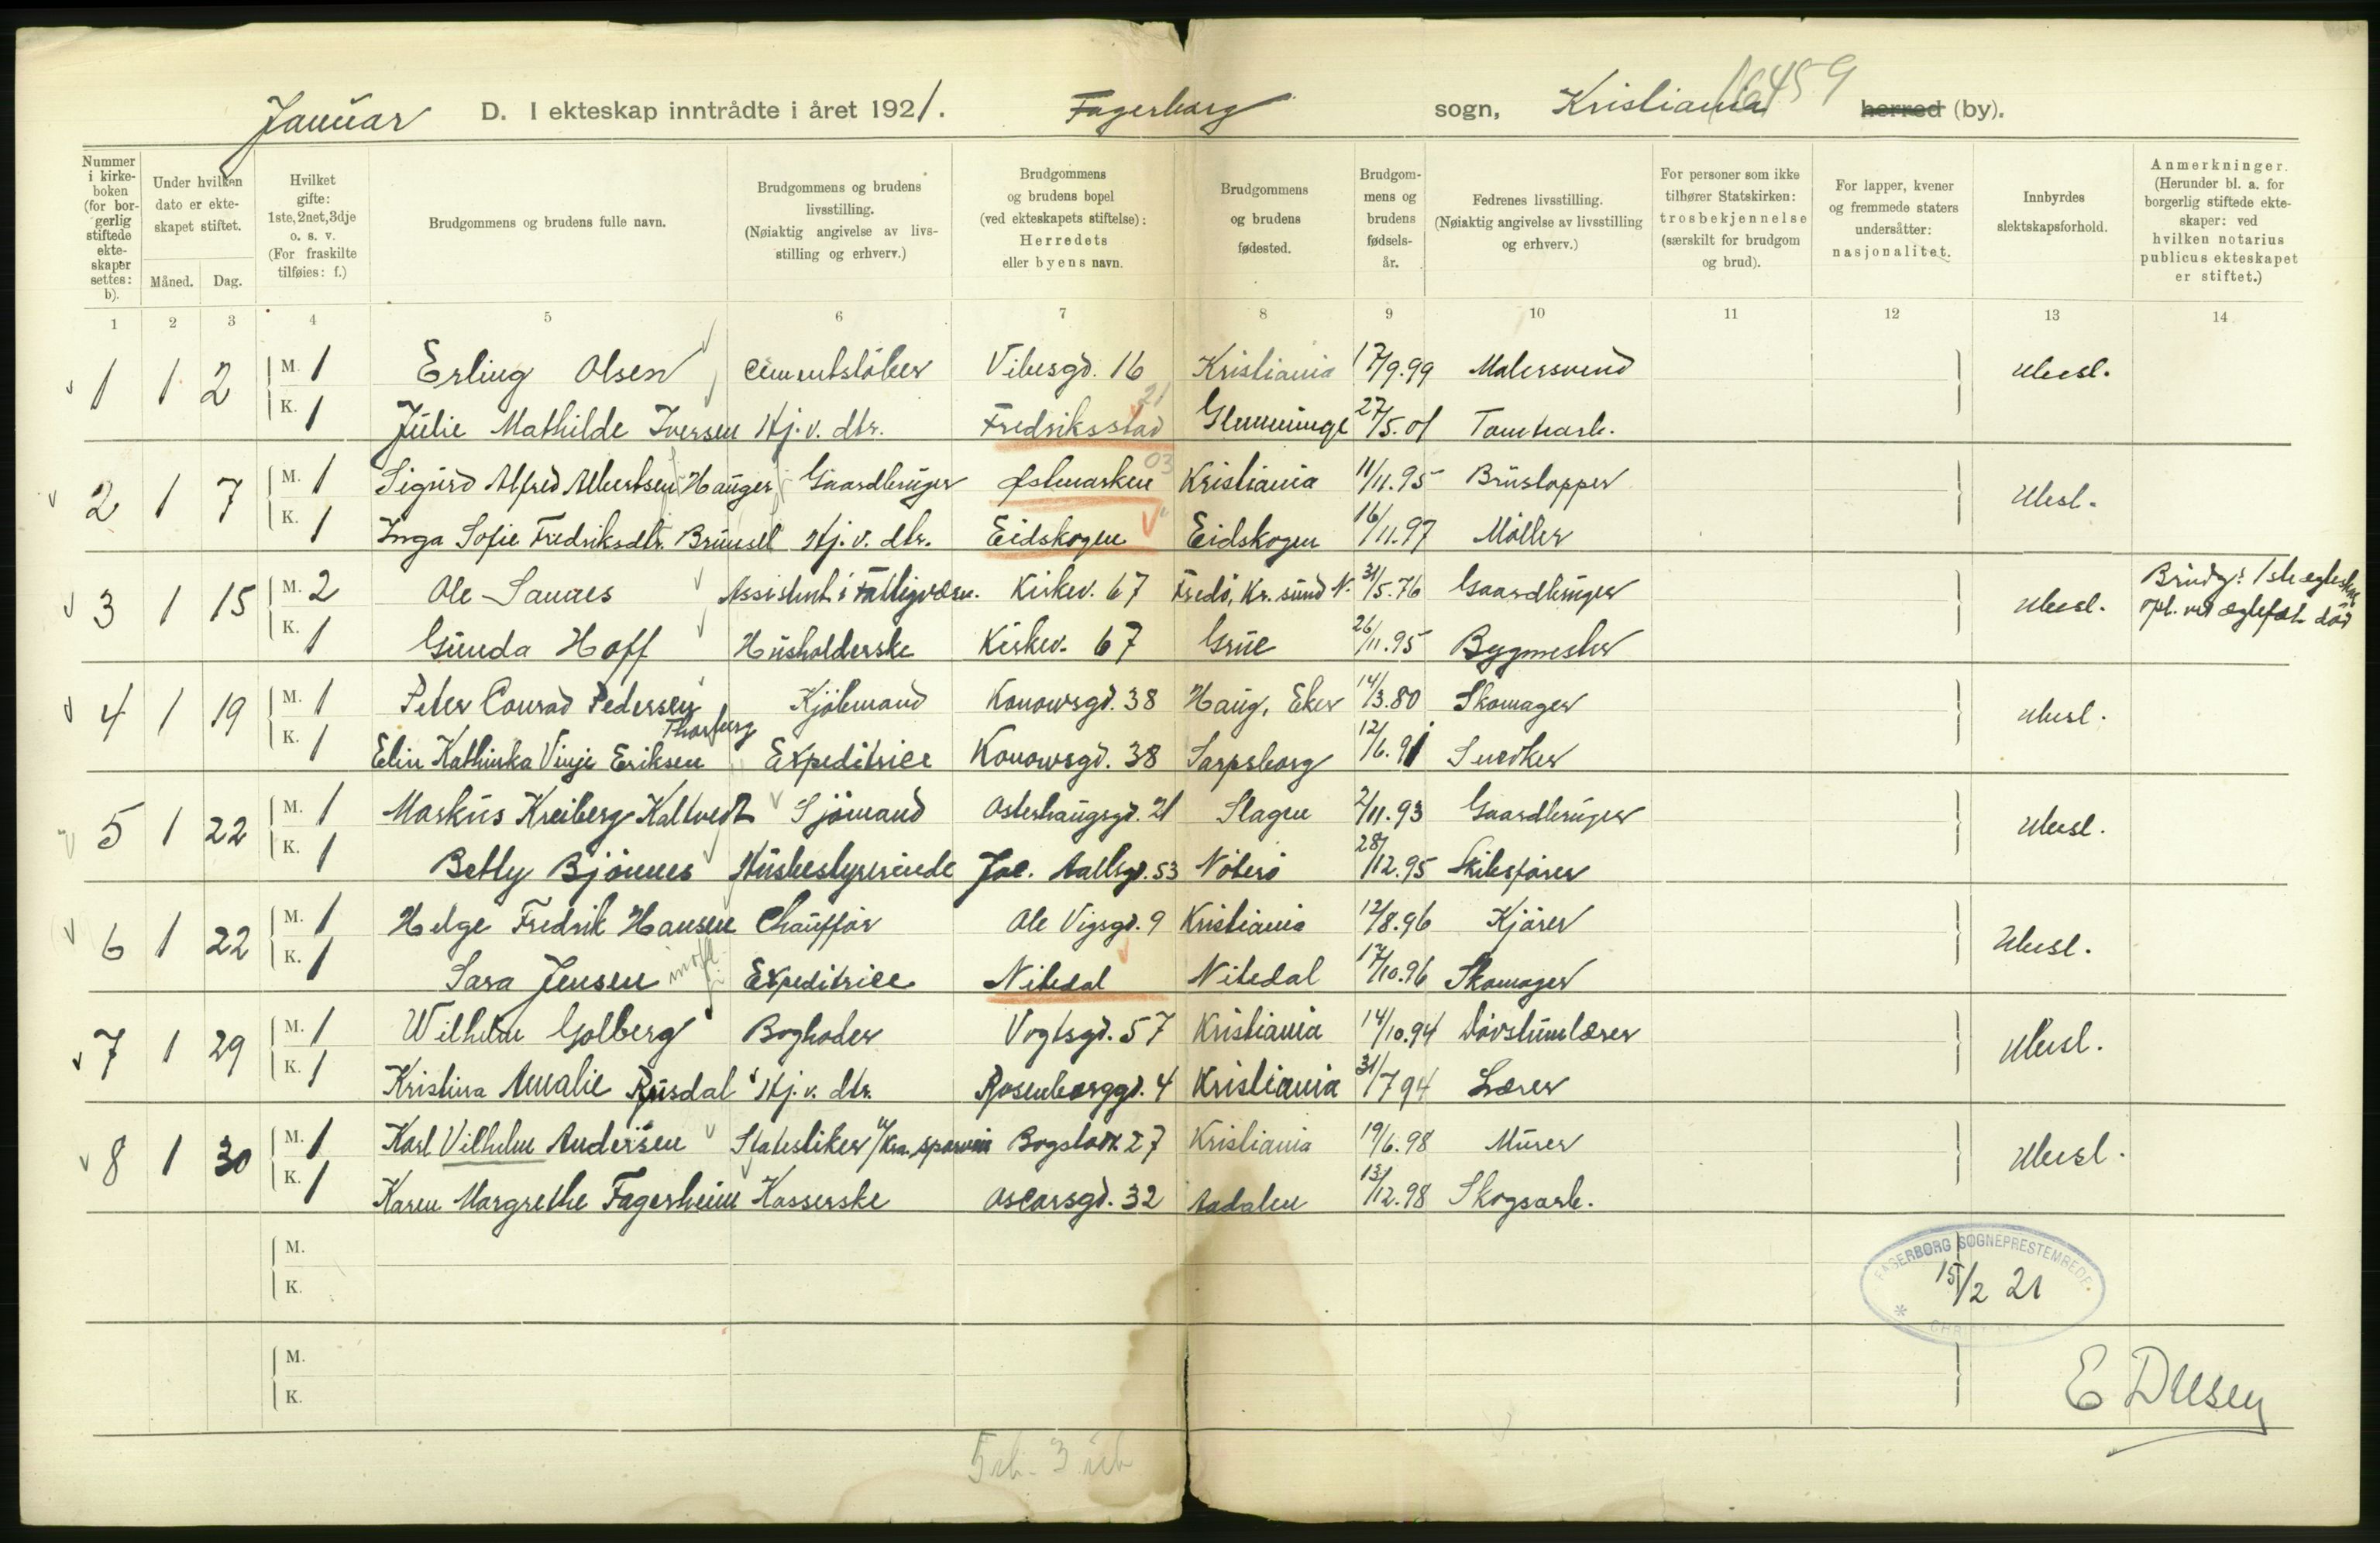 16459
Januar D. I ekteskap inntrådte i året 1921. Fagerborg sogn, Kristiania herred (by).
Nummer i kirkeboken (for borgerlig stiftede ekteskaper settes: b).
Under hvilken dato er ekteskapet stiftet.
Måned. Dag.
Hvilket gifte: 1ste, 2net, 3dje o. s. v. (For fraskilte tilføies: f.)
Brudgommens og brudens fulle navn.
Brudgommens og brudens livsstilling. (Nøiaktig angivelse av livsstilling og erhverv.)
Brudgommens og brudens bopel (ved ekteskapets stiftelse): Herredets eller byens navn.
Brudgommens og brudens fødested.
Brudgommens og brudens fødselsår.
Fedrenes livsstilling. (Nøiaktig angivelse av livsstilling og erhverv.)
For personer som ikke tilhører Statskirken: trosbekjennelse (særskilt for brudgom og brud).
For lapper, kvener og fremmede staters undersåtter: nasjonalitet.
Innbyrdes slektskapsforhold.
Anmerkninger. (Herunder bl. a. for borgerlig stiftede ekteskaper: ved hvilken notarius publicus ekteskapet er stiftet.)
1 2 3 4 5 6 7 8 9 10 11 12 13 14
1 1 2 M. 1 Erling Olsen Cementstøber Vibesgd. 16 Kristiania 17/9.99 Malersvend Ubesl.
K. 1 Julie Mathilde Iversen Hj. v. dtr. Fredriksstad 21 Glemminge 27/5.01 Tomtearb.
2 1 7 M. 1 Sigurd Alfred Albertsen Hauger Gaardbruger Østmarken 03 Kristiania 11/11.95 Brustopper Ubesl.
K. 1 Inga Sofie Fredriksdtr. Brunsel Hj. v. dtr. Eidskogen Eidskogen 16/11.97 Møller
3 1 15 M. 2 Ole Sannes Assistent i Fattigvæsn. Kirkev. 67 Fredø, Kr. sund N. 31/5.76 Gaardbruger Ubesl. Brudg: 1ste ægtesk. opl. ved ægtefæl. død
K. 1 Gunda Hoff Husholderske Kirkev. 67 Grue 26/11.95 Bygmester
4 1 19 M. 1 Peter Conrad Pedersen Kjøbmand Konowsgd. 38 Haug, Eker 14/3.80 Skomager Ubesl.
Thorberg
K. 1 Elin Kathinka Vinje Eriksen Expeditrice Konowsgd. 38 Sarpsborg 12/6.91 Snedker
5 1 22 M. 1 Markus Kreiberg Kaltvedt Sjømand Osterhaugsgd. 21 Slagen 2/11.93 Gaardbruger Ubesl.
K. 1 Betly Bjønnes Husbestyrerinde Jac. Aallsgd. 53 Nøterø 28/12.95 Skibsfører
6 1 22 M. 1 Helge Fredrik Hansen Chauffør Ole Vigsgd. 9 Kristiania 12/8.96 Kjører Ubesl.
K. 1 Sara Jensen Expeditrice Nitedal Nitedal 17/10.96 Skomager
7 1 29 M. 1 Wilhelm Golberg Bogholder Vogtsgd. 57 Kristiania 14/10.94 Døvstumlærer Ubesl.
K. 1 Kristina Amalie Rusdal Hj. v. dtr. Rosenborggd. 4 Kristiania 31/7 94 Lærer
8 1 30 M. 1 Karl Vilhelm Andersen Statistiker v/Kra. sporvei Bogstadv. 27 Kristiania 19/6.98 Murer Ubesl.
K. 1 Karen Margrethe Fagerheim Kasserske Oscarsgd. 32 Aadalen 13/12.98 Skogsarb.
M.
K.
FAGERBORG SOGNEPRESTEMBEDE
15/2 21
M.
K.